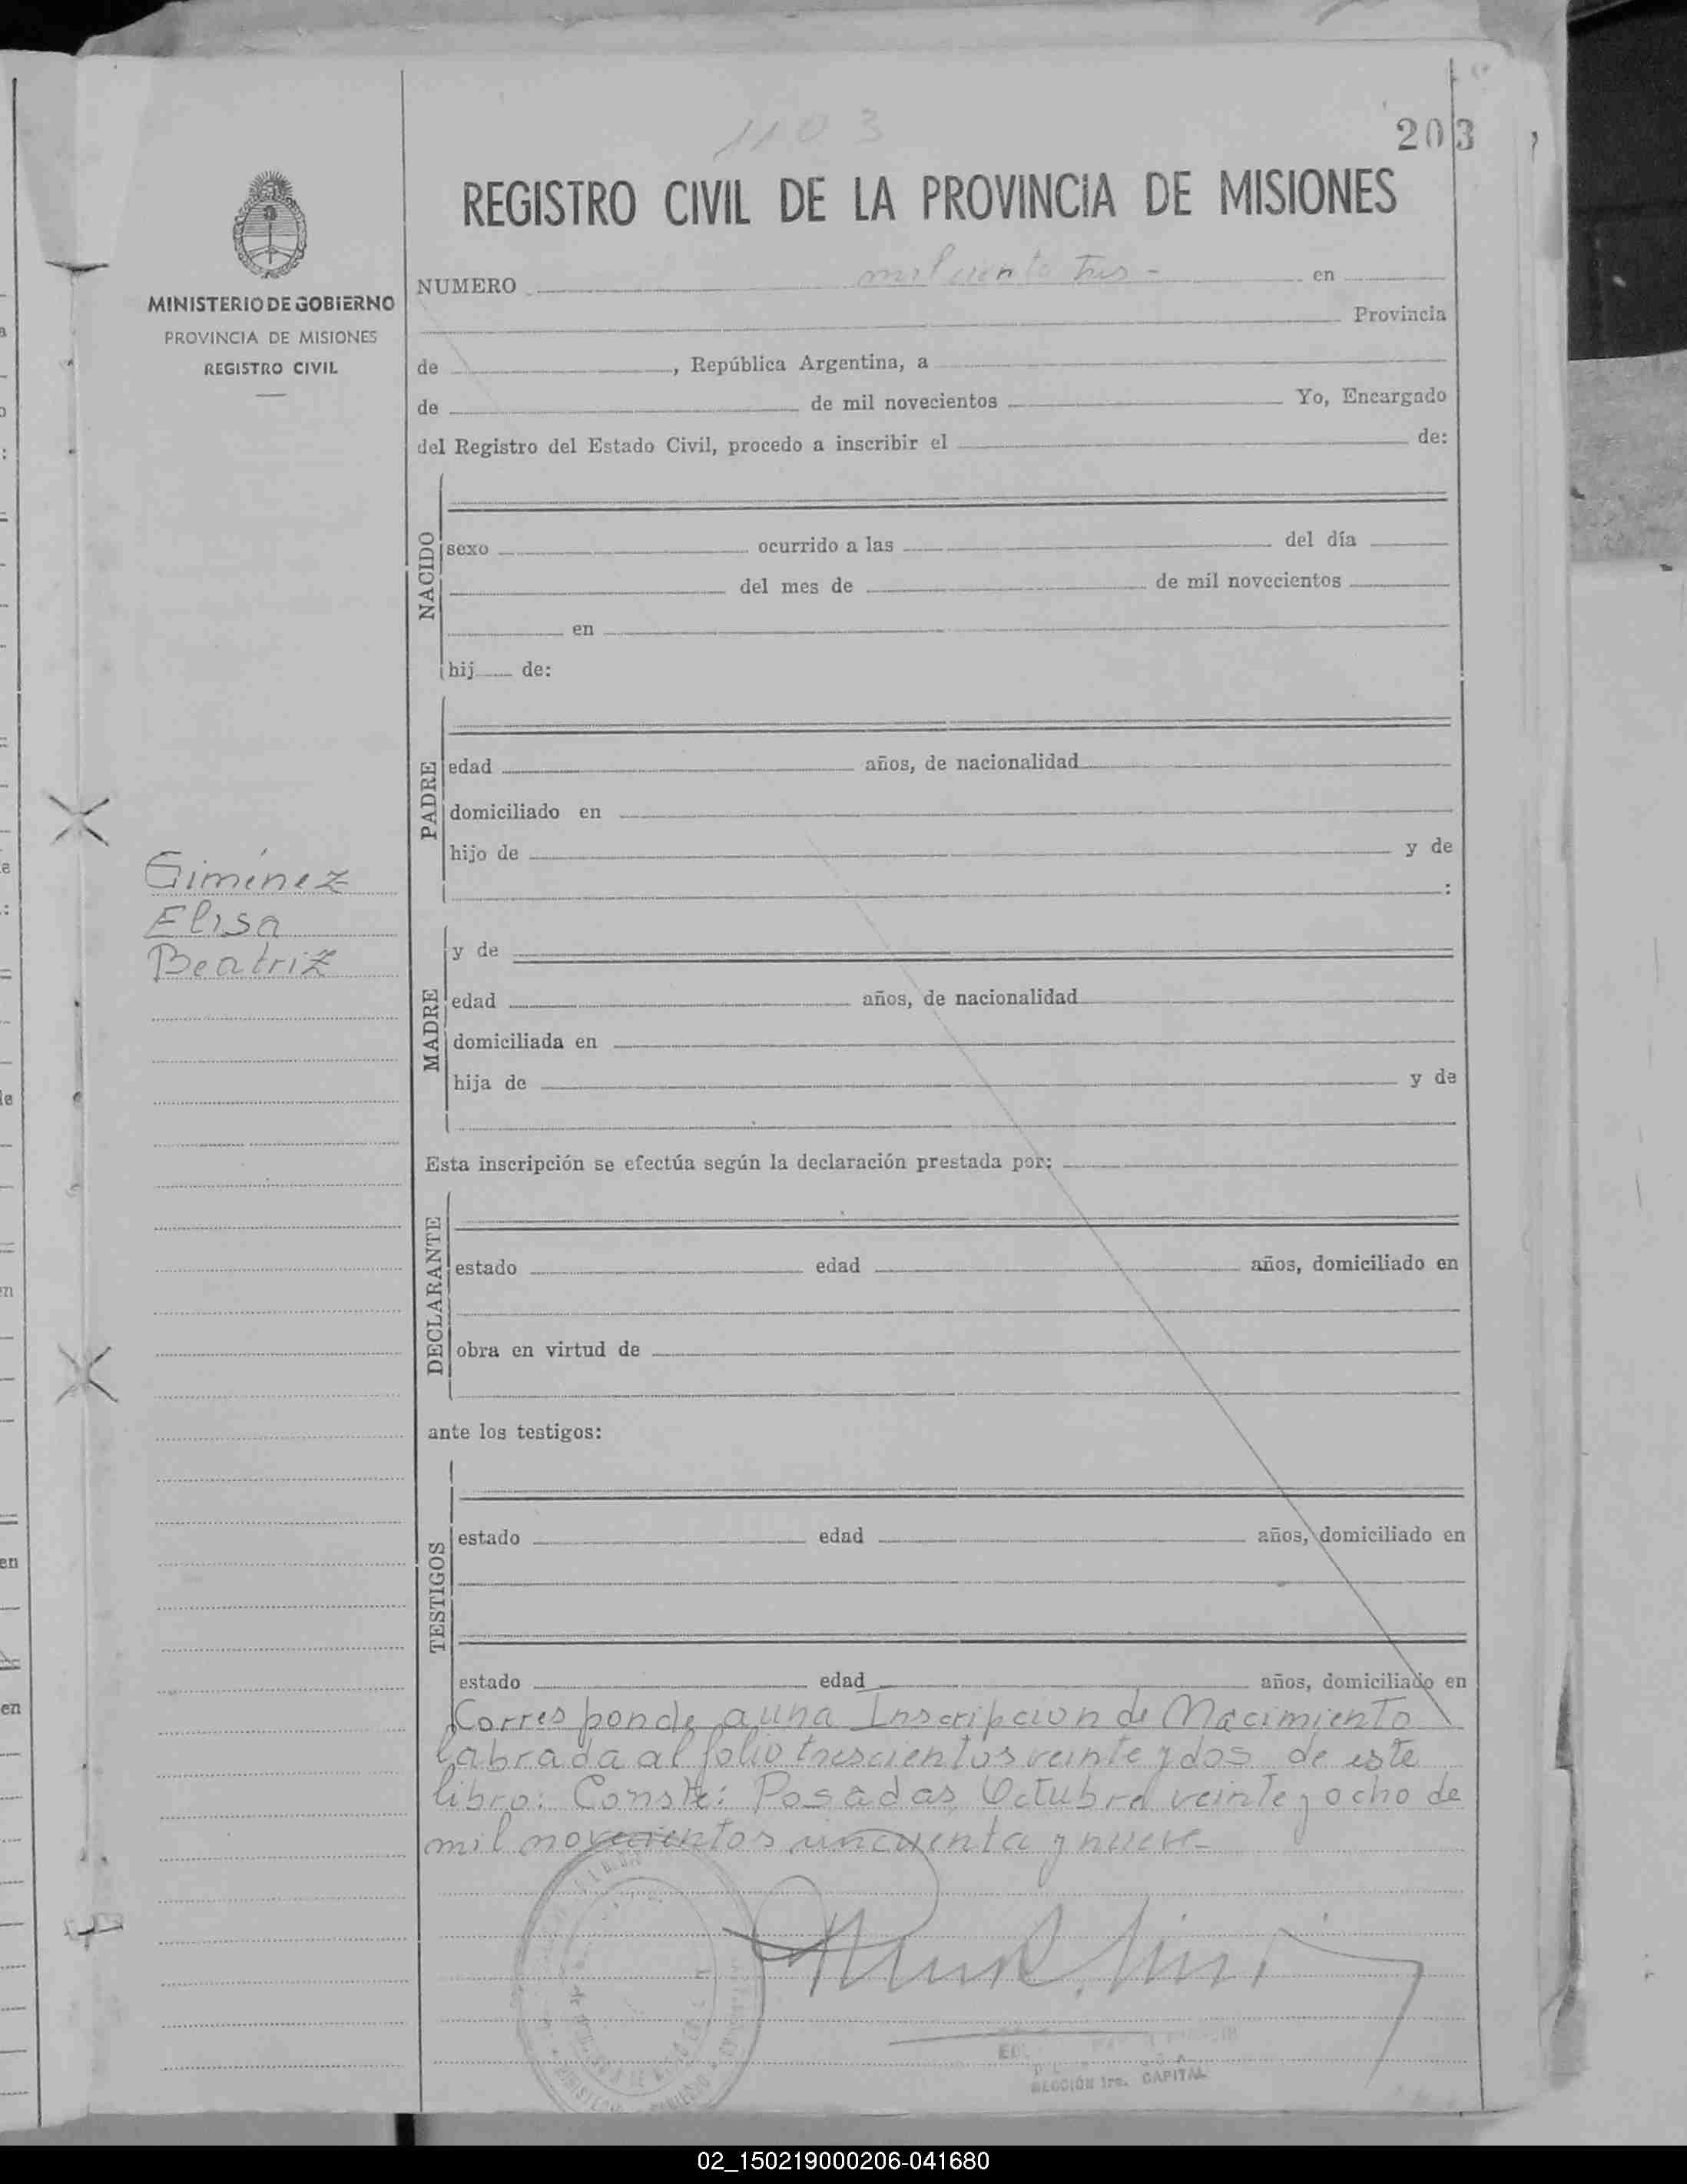 1103
203
REGISTRO CIVIL DE LA PROVINCIA DE MISIONES
MINISTERIO DE GOBIERNO
PROVINCIA DE MISIONES
REGISTRO CIVIL
NUMERO mil ciento tres - en
Provincia
de , República Argentina, a
de de mil novecientos Yo, Encargado
del Registro del Estado Civil, procedo a inscribir el de:
NACIDO
sexo ocurrido a las del día
del mes de de mil novecientos
en
hij de:
PADRE
edad años, de nacionalidad
domiciliado en
hijo de y de
:
Giménez
Elisa
Beatriz
MADRE
y de
edad años, de nacionalidad
domiciliada en
hija de y de
Esta inscripción se efectúa según la declaración prestada por:
DECLARANTE
estado edad años, domiciliado en
obra en virtud de
ante los testigos:
TESTIGOS
estado edad años, domiciliado en
estado edad años, domiciliado en
Corresponde a una Inscripcion de Nacimiento
labrada al folio trescientos veinte y dos de este
libro: Conste: Posadas, Octubre veinte y ocho de
mil novecientos cincuenta y nueve
SECCIÓN 1ra. CAPITAL
02_150219000206-041680